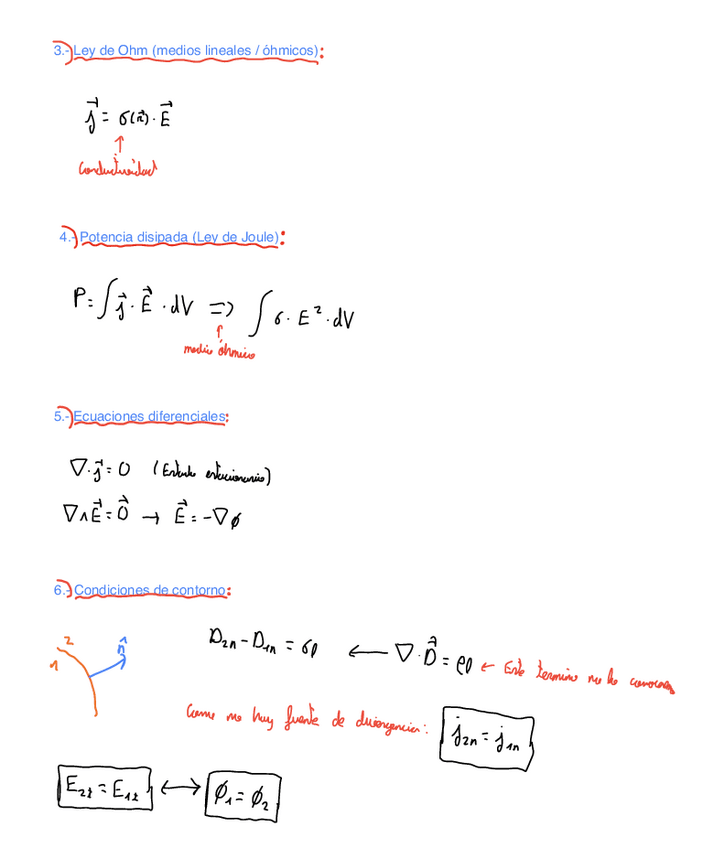 3.- Ley de Ohm (medios lineales / óhmicos):
j⃗ = σ(r⃗) · E⃗
↑
Conductividad
4.- Potencia disipada (Ley de Joule):
P = ∫ j⃗ · E⃗ · dV => ∫ σ · E² · dV
↑
medio óhmico
5.- Ecuaciones diferenciales:
∇ · j⃗ = 0 (Estado estacionario)
∇ ∧ E⃗ = 0⃗ → E⃗ = -∇ϕ
6.- Condiciones de contorno:
2
1
n̂
D₂ₙ - D₁ₙ = σρ ← ∇ · D⃗ = ρρ ← Este termino no lo conocemos
Como no hay fuente de divergencia: j₂ₙ = j₁ₙ
E₂ₜ = E₁ₜ ↔ ϕ₁ = ϕ₂